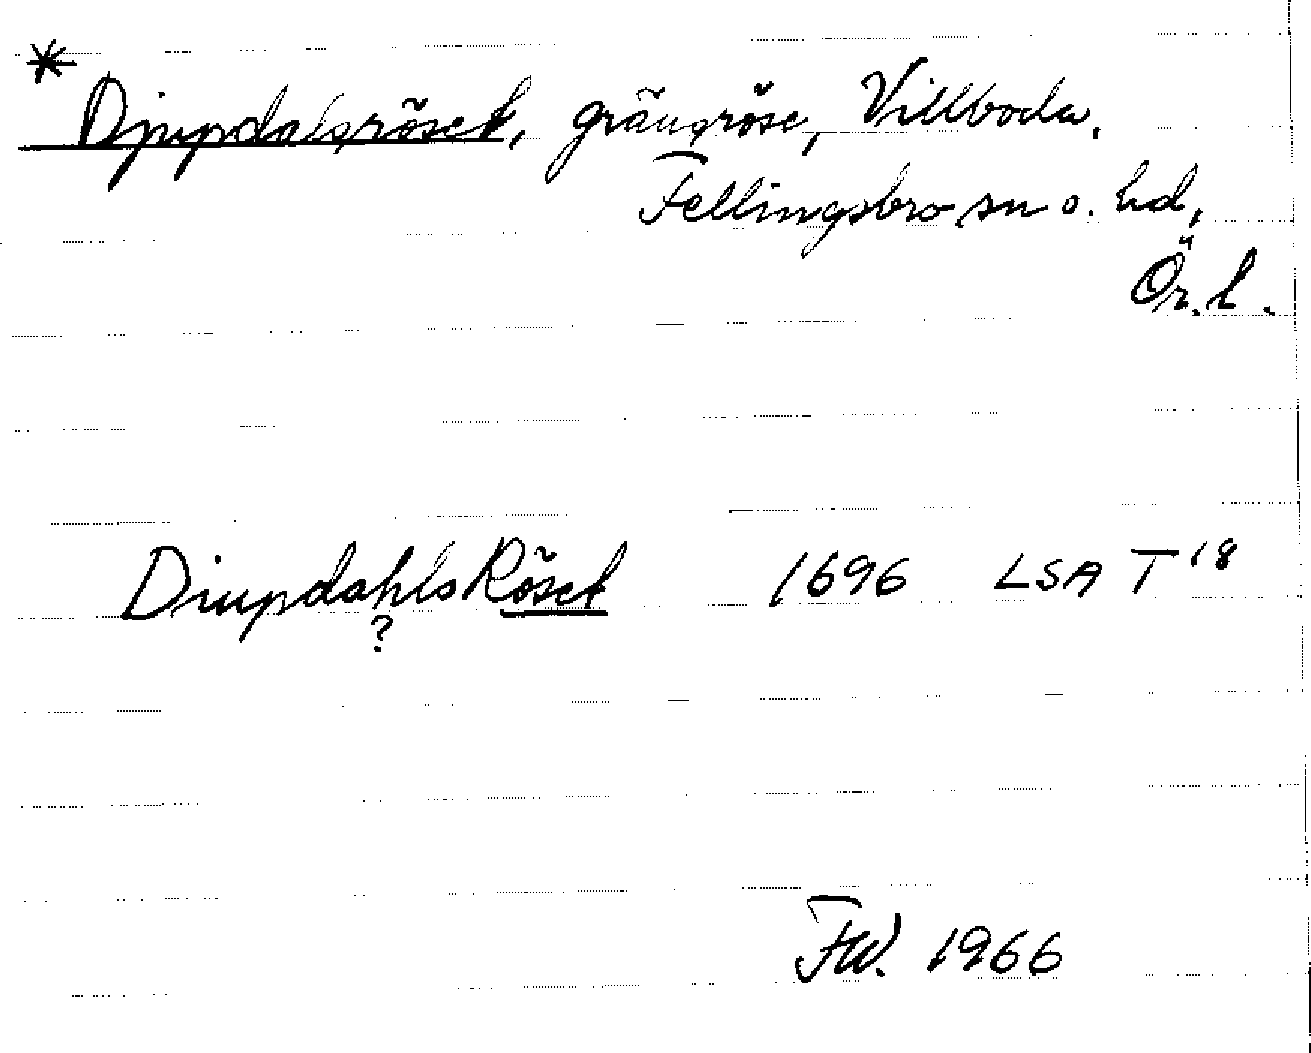 *
Djupdalsröset, gränsröse, Villboda.
Fellingsbro sn o. hd,
Ör. l.
Diupdahls Röset 1696 LSA T 18
?
FW. 1966